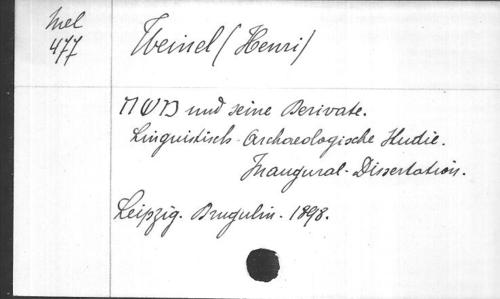 Mel
477
Weinel (Henri)
משח und seine Derivate.
Linguistisch-Archaeologische Studie.
Inaugural-Dissertation.
Leipzig. Drugulin. 1898.